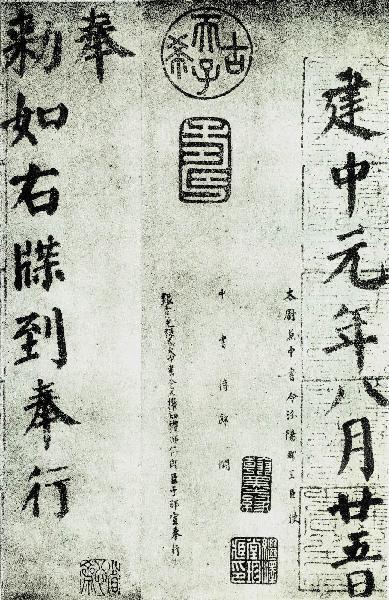 古希天子
建中元年八月廿五日
太尉兼中書令汾陽郡王臣使
中書侍郎闕
中書舍人權知禮部侍郎臣于邵宣奉行
奉
勑如右牒到奉行